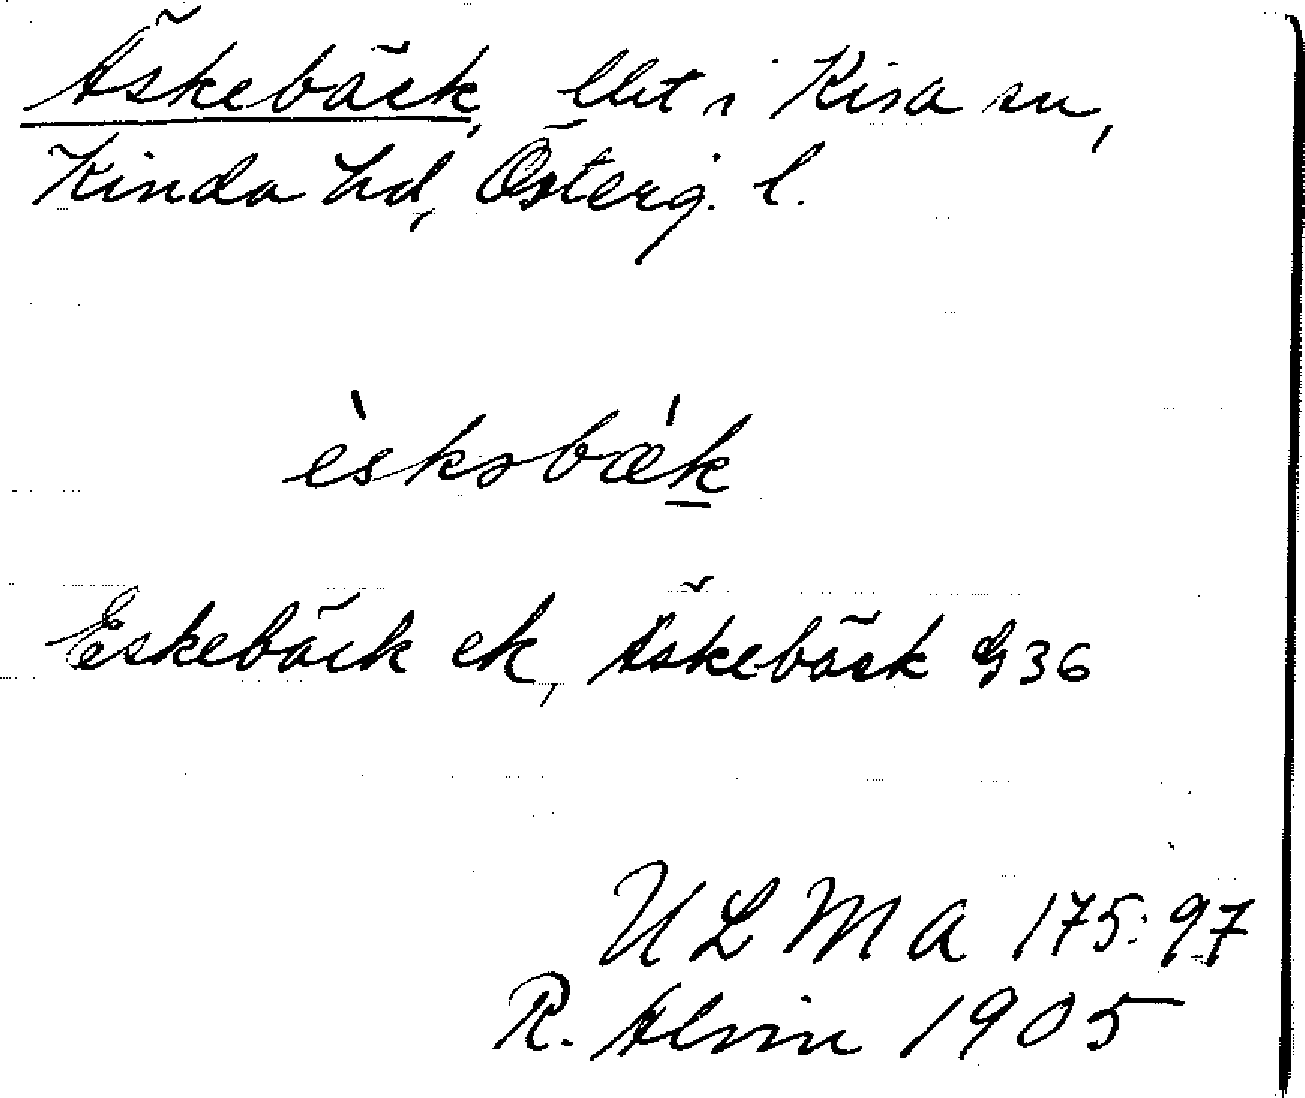 Äskebäck, lht i Kisa sn,
Kinda hd, Österg. l.
èskəbǽk
Eskebäck ek, Äskebäck G 36
ULMA 175:97
R. Alvin 1905